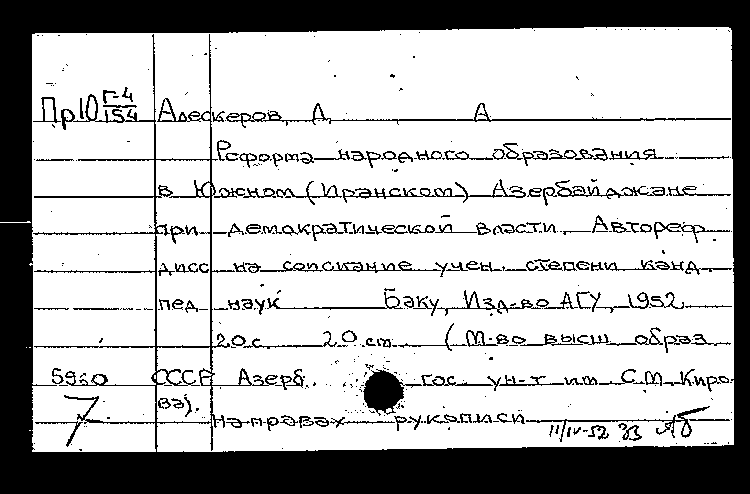 Пр10 Г-4/154 Алескеров, А. А
Реформа народного образования
в Южном (Иранском) Азербайджане
при демократической власти. Автореф
дисс на соискание учен. степени канд.
пед наук Баку, Изд-во АГУ, 1952.
20 с. 20 см (М-во высш образ
5960 СССР Азерб. гос. ун-т им С.М. Киро-
7 ва).
на правах рукописи
11/IV-52